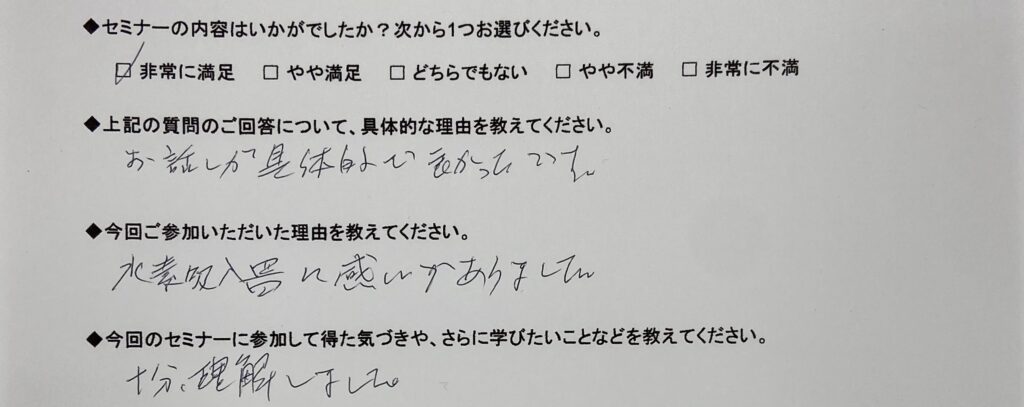 ◆セミナーの内容はいかがでしたか?次から1つお選びください。
☑ 非常に満足 □ やや満足 □ どちらでもない □ やや不満 □ 非常に不満
◆上記の質問のご回答について、具体的な理由を教えてください。
お話しが具体的で良かったです。
◆今回ご参加いただいた理由を教えてください。
水素吸入器に感心がありました。
◆今回のセミナーに参加して得た気づきや、さらに学びたいことなどを教えてください。
十分、理解しました。